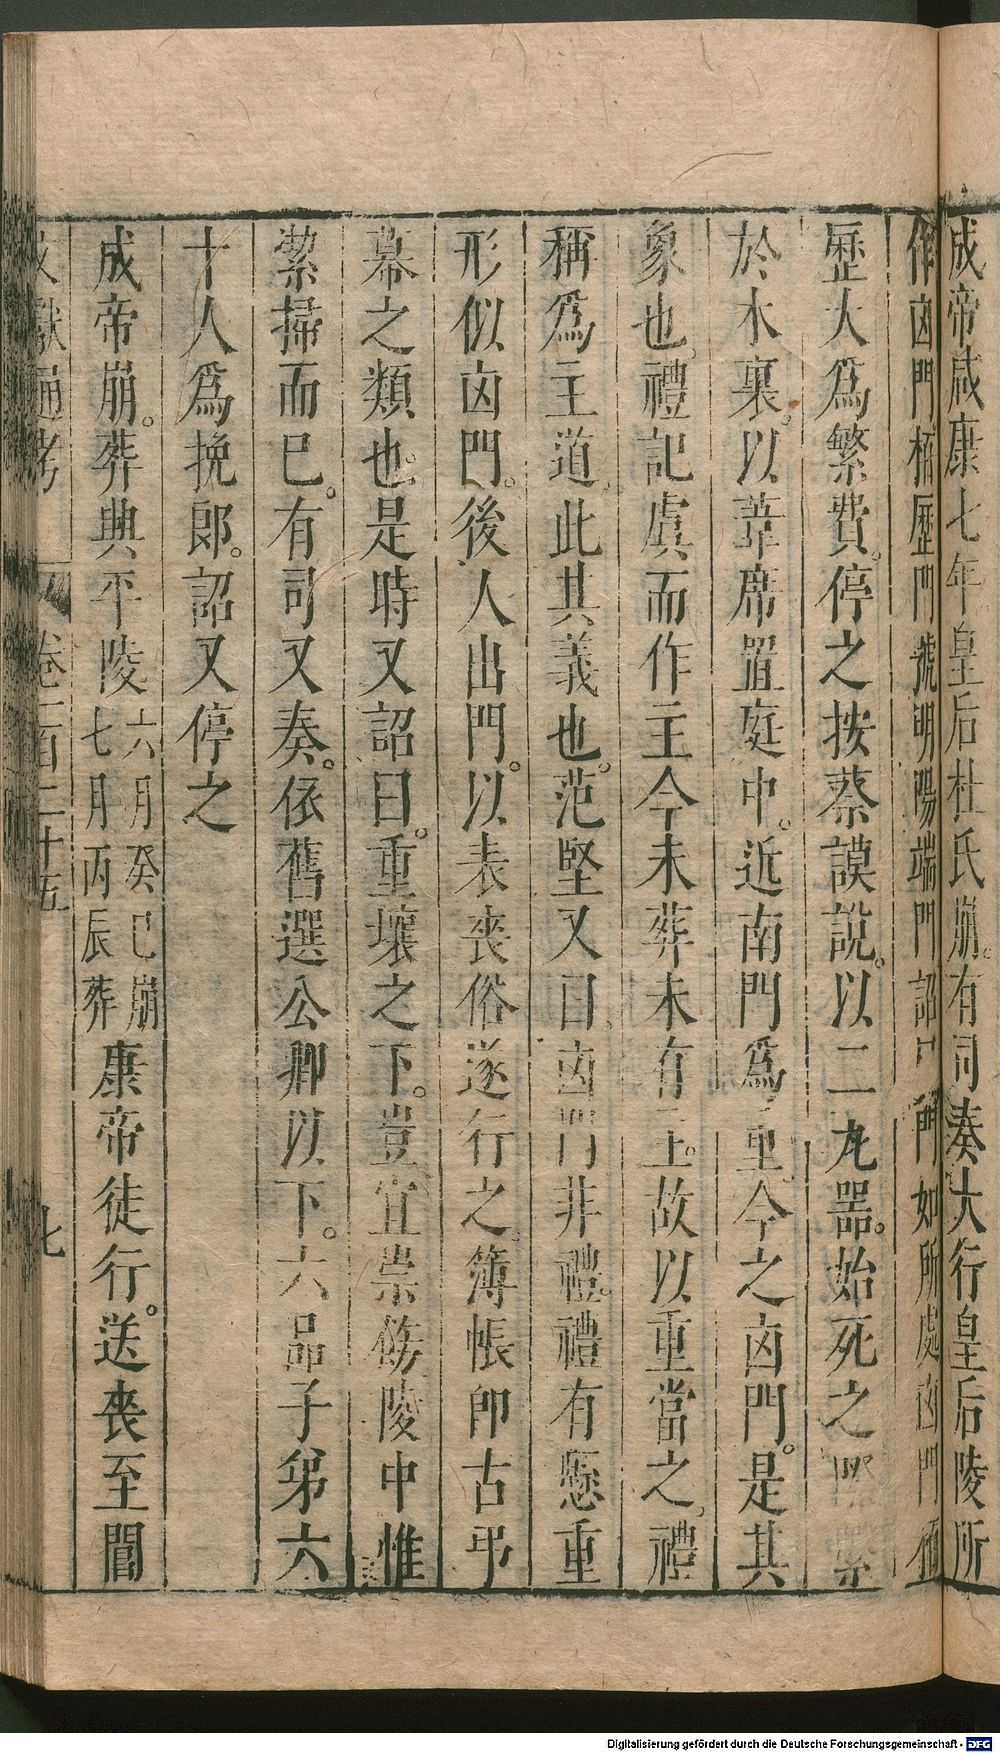 成帝咸康七年皇后杜氏崩。有司奏大行皇后陵所
作凶門栢歷門號明陽端門詔門如所處凶門
歷大爲繁費。停之按蔡謨說。以二九器。始死之
於木裏。以葦席置庭中。近南門爲重。今之凶門。是其
象也。禮記虞而作主今未葬未有主。故以重當之。禮
稱爲主道。此其義也。范堅又曰。凶門非禮。禮有懸重
形似凶門。後人出門。以表喪俗遂行之。簿帳卽古弔
幕之類也。是時又詔曰。重壤之下。豈宜崇飾陵中惟
絜掃而已。有司又奏。依舊選公卿以下。六品子弟六
十人爲挽郎。詔又停之
成帝崩。葬興平陵六月癸巳崩七月丙辰葬康帝徒行。送喪至閶
文獻通考 卷一百二十五 七
Digitalisierung gefördert durch die Deutsche Forschungsgemeinschaft - DFG